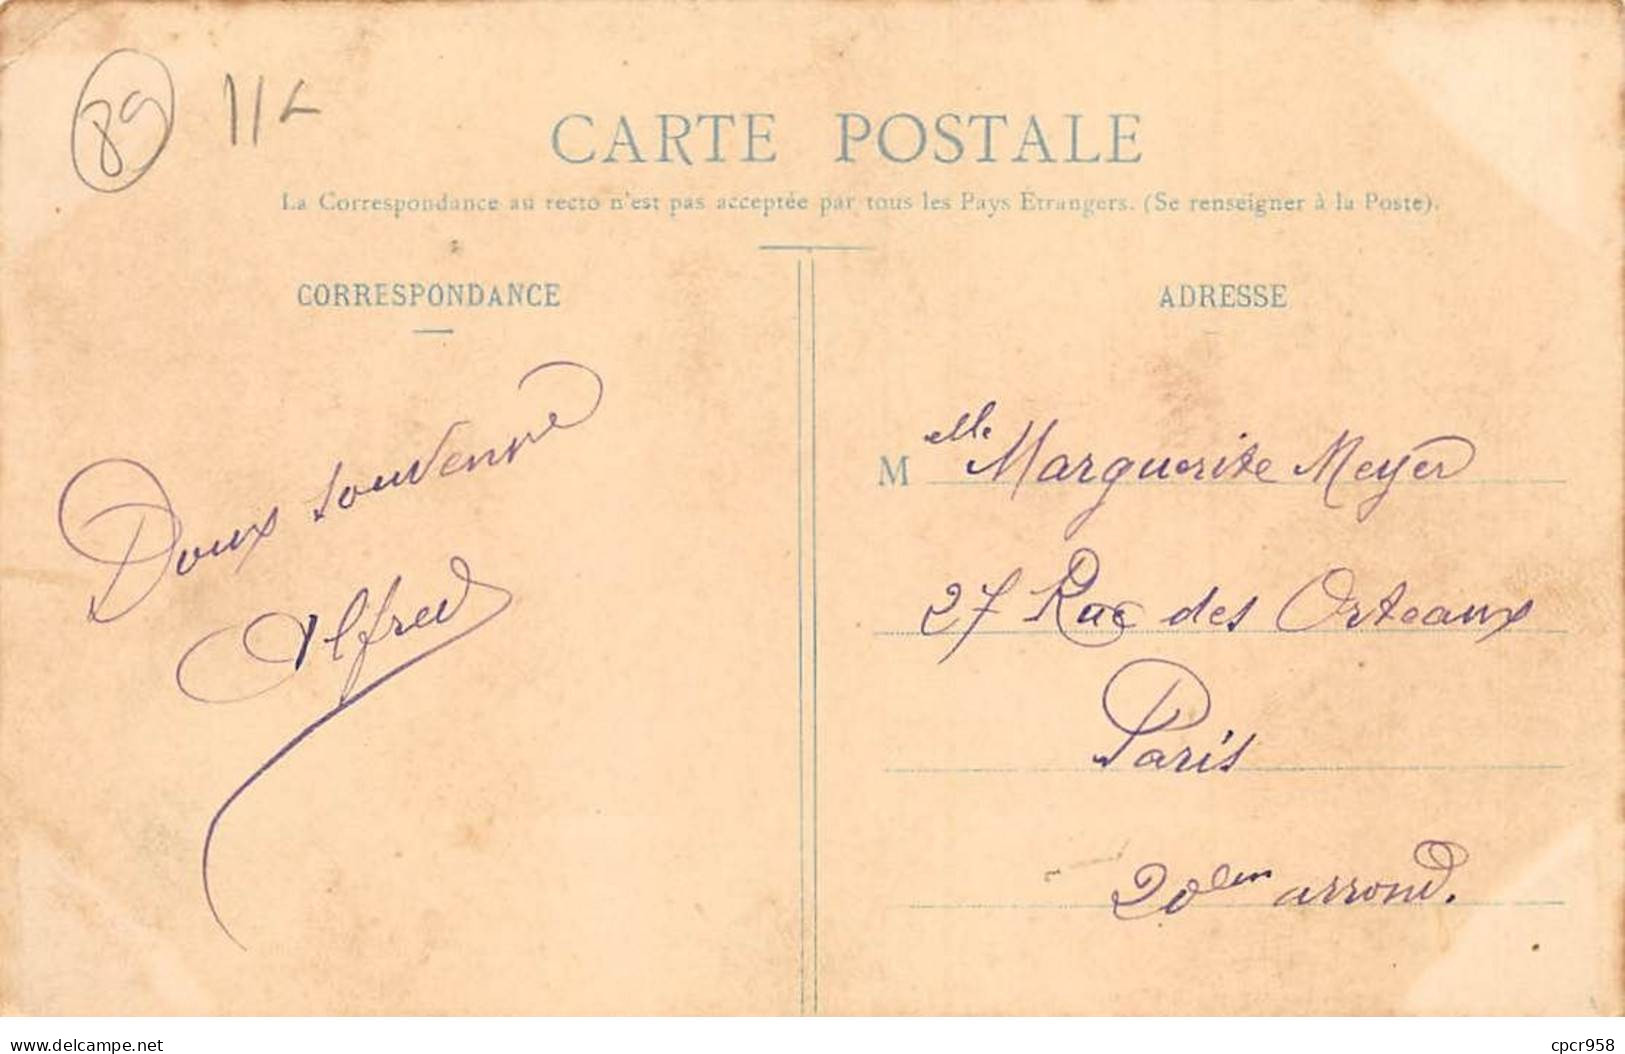 89 11L
CARTE POSTALE
La Correspondance au recto n'est pas acceptée par tous les Pays Étrangers. (Se renseigner à la Poste).
CORRESPONDANCE
Doux souvenir
Alfred
ADRESSE
Melle Marguerite Meyer
27 Rue des Orteaux
Paris
20em arrond.
www.delcampe.net
cpcr958